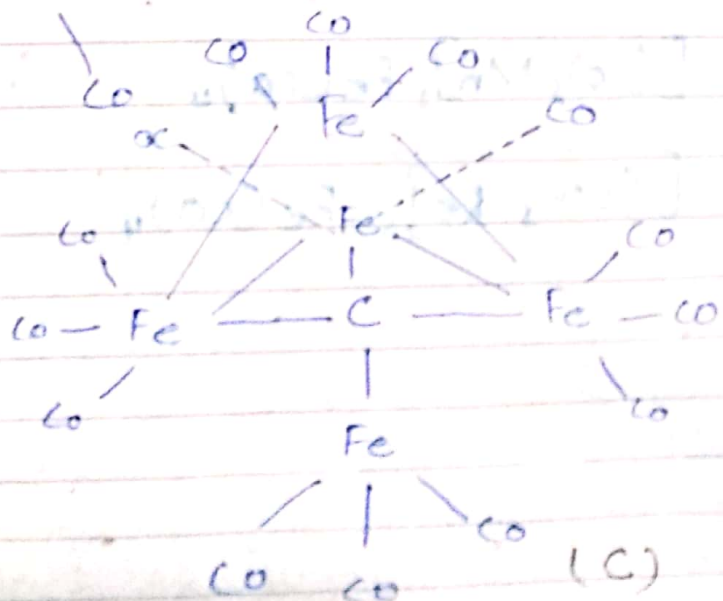 CO
CO CO
CO Fe CO
OC CO
CO Fe CO
CO — Fe — C — Fe — CO
CO Fe CO
CO CO CO
(C)